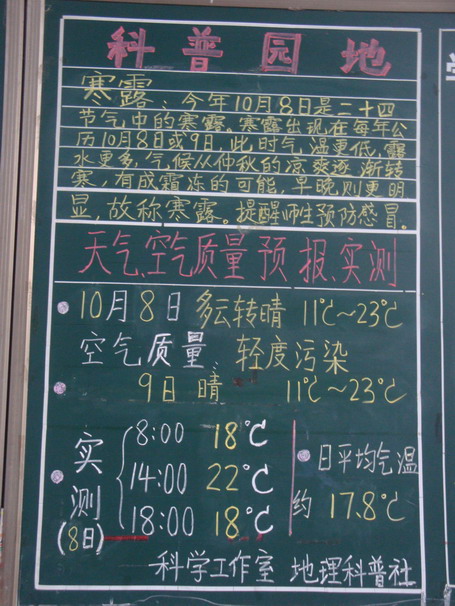 科普园地
寒露：今年10月8日是二十四
节气中的寒露。寒露出现在每年公
历10月8日或9日，此时气温更低，露
水更多，气候从仲秋的凉爽逐渐转
寒，有成霜冻的可能，早晚则更明
显，故称寒露。提醒师生预防感冒。
天气、空气质量预报、实测
10月8日 多云转晴 11℃～23℃
空气质量：轻度污染
9日 晴 11℃～23℃
实测(8日)
8:00 18℃
14:00 22℃
18:00 18℃
日平均气温
约 17.8℃
科学工作室 地理科普社